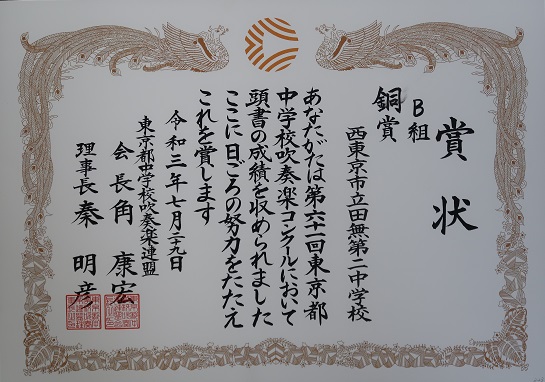 賞状
B組
銅賞
西東京市立田無第二中学校
あなたがたは第六十一回東京都
中学校吹奏楽コンクールにおいて
頭書の成績を収められました
ここに日ごろの努力をたたえ
これを賞します
令和三年七月二九日
東京都中学校吹奏楽連盟
会長角康宏
理事長秦明彦